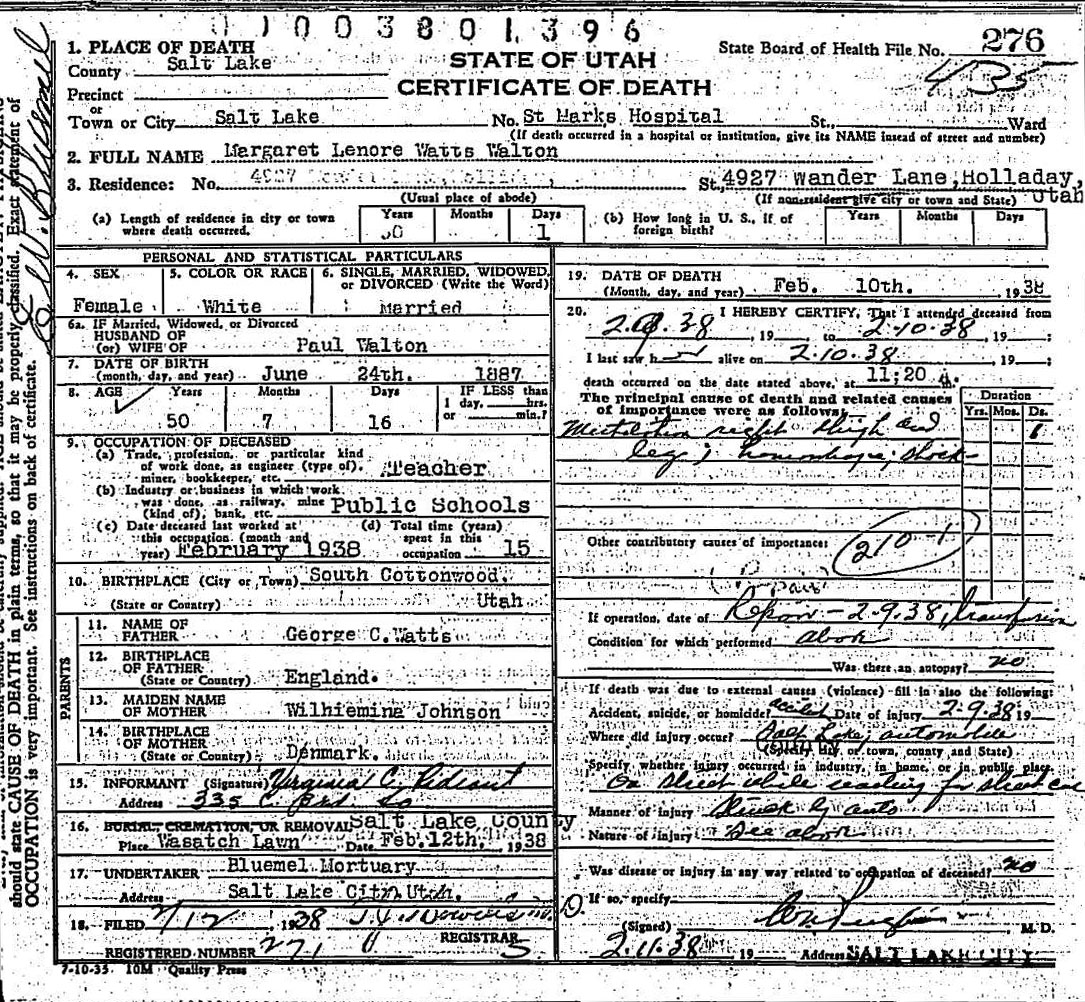 01003801396
1. PLACE OF DEATH
County Salt Lake
Precinct
or
Town or City Salt Lake No. St Marks Hospital St., Ward
(If death occurred in a hospital or institution, give its NAME instead of street and number)
STATE OF UTAH
CERTIFICATE OF DEATH
State Board of Health File No. 276
435
2. FULL NAME Margaret Lenore Watts Walton
3. Residence: No. 4927 St., 4927 Wander Lane, Holladay, Utah
(Usual place of abode) (If non-resident give city or town and State)
(a) Length of residence in city or town where death occurred. Years 50 Months Days 1
(b) How long in U. S., if of foreign birth? Years Months Days
PERSONAL AND STATISTICAL PARTICULARS
4. SEX Female
5. COLOR OR RACE White
6. SINGLE, MARRIED, WIDOWED, or DIVORCED (Write the Word) Married
6a. IF Married, Widowed, or Divorced
HUSBAND OF
(or) WIFE OF Paul Walton
7. DATE OF BIRTH
(month, day, and year) June 24th. 1887
8. AGE Years 50 Months 7 Days 16 IF LESS than 1 day, hrs. or min.?
9. OCCUPATION OF DECEASED
(a) Trade, profession, or particular kind of work done, as engineer (type of), miner, bookkeeper, etc. Teacher
(b) Industry or business in which work was done, as railway, mine (kind of), bank, etc. Public Schools
(c) Date deceased last worked at this occupation (month and year) February 1938
(d) Total time (years) spent in this occupation 15
10. BIRTHPLACE (City or Town) South Cottonwood,
(State or Country) Utah
PARENTS
11. NAME OF FATHER George C. Watts
12. BIRTHPLACE OF FATHER
(State or Country) England.
13. MAIDEN NAME OF MOTHER Wilhiemina Johnson
14. BIRTHPLACE OF MOTHER
(State or Country) Denmark.
15. INFORMANT (Signature) Virginia C. Rideout
Address 335 E. 3rd. So
16. BURIAL, CREMATION, OR REMOVAL Salt Lake County
Place Wasatch Lawn Date Feb. 12th, 1938
17. UNDERTAKER Bluemel Mortuary
Address Salt Lake City Utah.
18. FILED 2/12 1938
REGISTRAR
REGISTERED NUMBER 271
7-10-35. 10M Quality Press
19. DATE OF DEATH
(Month, day, and year) Feb. 10th. 1938
20. I HEREBY CERTIFY, That I attended deceased from
2.9.38, 19 to 2.10.38, 19 :
I last saw h alive on 2.10.38, 19 :
death occurred on the date stated above, at 11:20 A.
The principal cause of death and related causes of importance were as follows:
Duration
Yrs. Mos. Ds.
right thigh and 1
leg; hemorrhage; shock
Other contributory causes of importance:
210-1
If operation, date of Repair - 2.9.38, transfusion
Condition for which performed above
Was there an autopsy? no
If death was due to external causes (violence) fill in also the following:
Accident, suicide, or homicide? accident Date of injury 2.9.38 19
Where did injury occur? Salt Lake, automobile
(Specify city or town, county and State)
Specify whether injury occurred in industry, in home, or in public place.
On street while waiting for street car
Manner of injury Struck by auto
Nature of injury See above
Was disease or injury in any way related to occupation of deceased? no
If so, specify
(Signed) M. D.
2.11.38 19 Address SALT LAKE CITY
should state CAUSE OF DEATH in plain terms, so that it may be properly classified. Exact statement of
OCCUPATION is very important. See instructions on back of certificate.